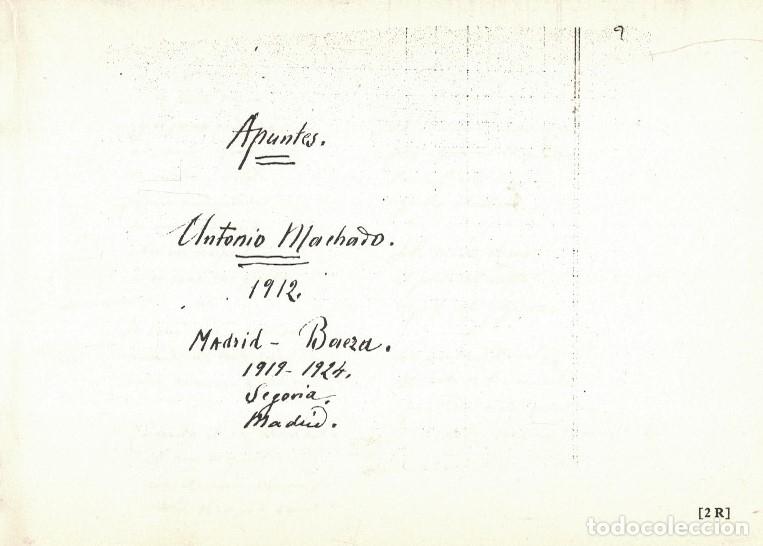 9
Apuntes.
Antonio Machado.
1912.
Madrid - Baeza.
1919-1924.
Segovia.
Madrid.
[2 R]
todocoleccion